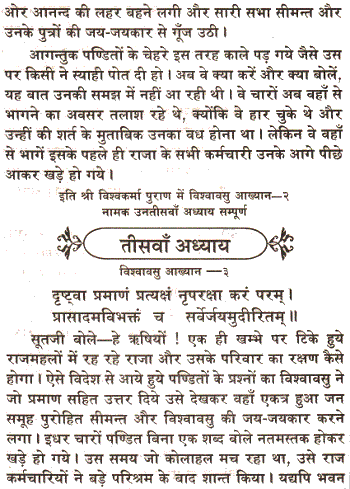 ओर आनन्द की लहर बहने लगी और सारी सभा सीमन्त और
उनके पुत्रों की जय-जयकार से गूँज उठी ।
आगन्तुक पण्डितों के चेहरे इस तरह काले पड़ गये जैसे उस
पर किसी ने स्याही पोत दी हो । अब वे क्या करें और क्या बोलें,
यह बात उनकी समझ में नहीं आ रही थी । वे चारों अब वहाँ से
भागने का अवसर तलाश रहे थे, क्योंकि वे हार चुके थे और
उन्हीं की शर्त के मुताबिक उनका बध होना था । लेकिन वे वहाँ
से भागें इसके पहले ही राजा के सभी कर्मचारी उनके आगे पीछे
आकर खड़े हो गये ।
इति श्री विश्वकर्मा पुराण में विश्वावसु आख्यान—२
नामक उनतीसवाँ अध्याय सम्पूर्ण
तीसवाँ अध्याय
विश्वावसु आख्यान —३
दृष्ट्वा प्रमाणं प्रत्यक्षं नृपरक्षा करं परम् ।
प्रासादमविभक्तं च सर्वेर्जयमुदीरितम् ॥
सूतजी बोले—हे ऋषियों ! एक ही खम्भे पर टिके हुये
राजमहलों में रह रहे राजा और उसके परिवार का रक्षण कैसे
होगा । ऐसे विदेश से आये हुये पण्डितों के प्रश्नों का विश्वावसु ने
जो प्रमाण सहित उत्तर दिये उसे देखकर वहाँ एकत्र हुआ जन
समूह पुरोहित सीमन्त और विश्वावसु की जय-जयकार करने
लगा । इधर चारों पण्डित बिना एक शब्द बोले नतमस्तक होकर
खड़े हो गये । उस समय जो कोलाहल मच रहा था, उसे राज
कर्मचारियों ने बड़े परिश्रम के बाद शान्त किया । यद्यपि भवन